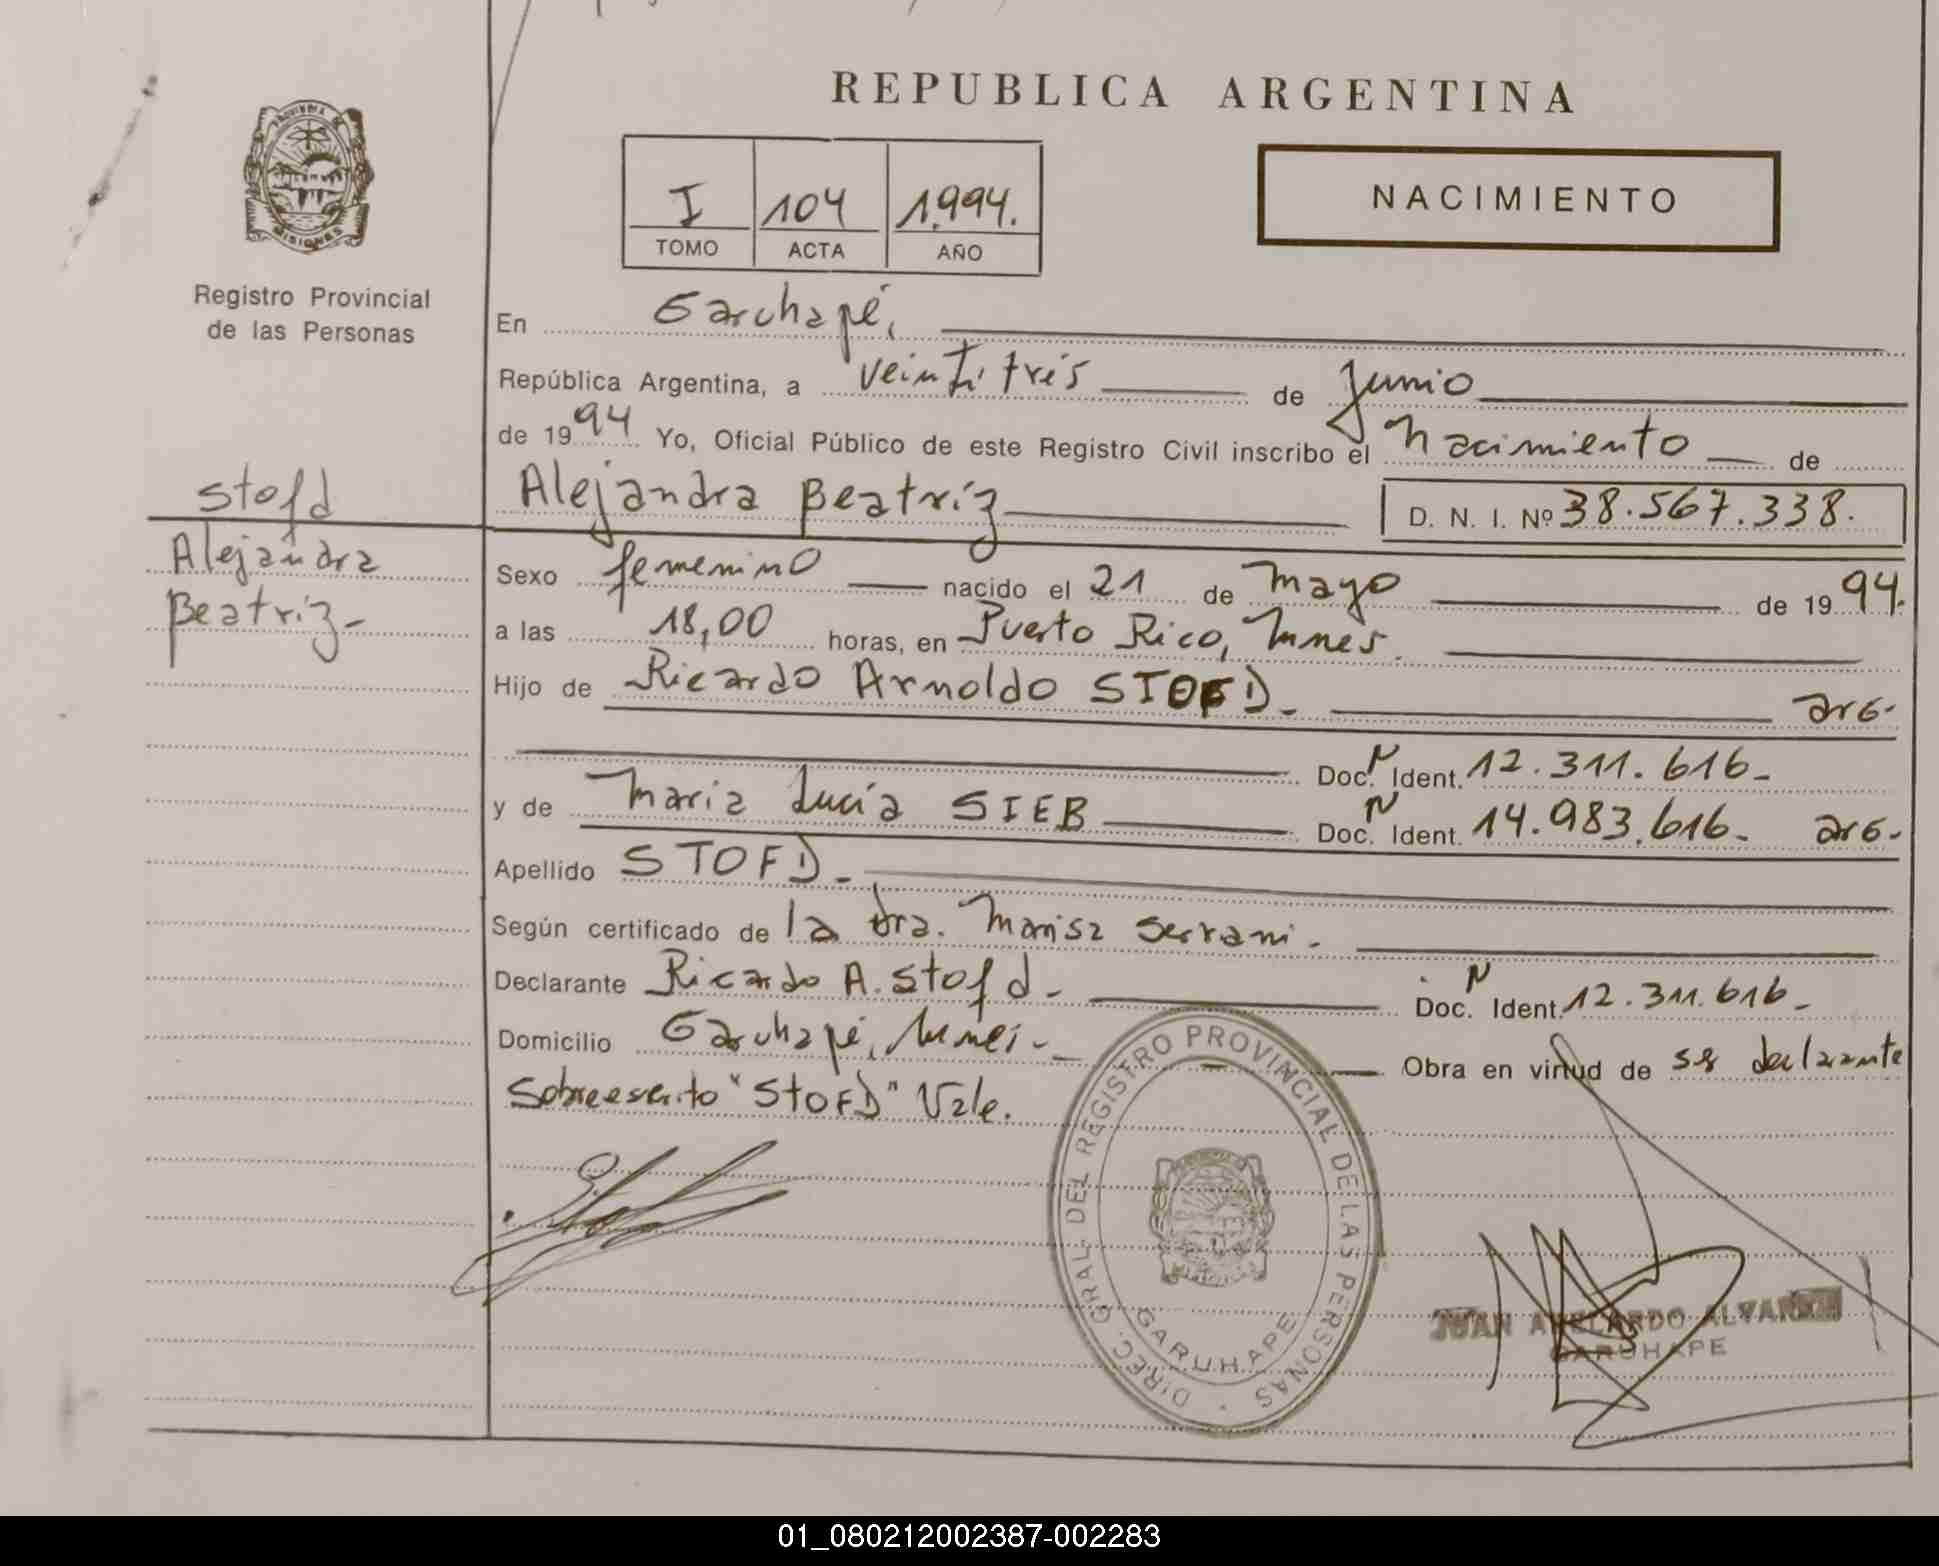 REPUBLICA ARGENTINA
PROVINCIA DE
MISIONES
Registro Provincial
de las Personas
I 104 1.994.
TOMO ACTA AÑO
NACIMIENTO
En Garuhapé,
República Argentina, a veintitrés de Junio
de 1994 Yo, Oficial Público de este Registro Civil inscribo el Nacimiento de
Stofd
Alejandra
Beatriz-
Alejandra Beatriz D. N. I. Nº 38.567.338.
Sexo femenino nacido el 21 de Mayo de 1994.
a las 18,00 horas, en Puerto Rico, Mnes.
Hijo de Ricardo Arnoldo STOFD- arg.
Doc. N Ident. 12.311.616-
y de Maria Lucía SIEB Doc. N Ident. 14.983.616- arg-
Apellido STOFD-
Según certificado de la dra. Marisa Serrani-
Declarante Ricardo A. Stofd- Doc. N Ident. 12.311.616-
Domicilio Garuhapé, Mnes- Obra en virtud de ser declarante
Sobreescrito "STOFD" Vale.
DIREC. GRAL. DEL REGISTRO PROVINCIAL DE LAS PERSONAS
GARUHAPE
JUAN ABELARDO ALVAREZ
GARUHAPE
01_080212002387-002283